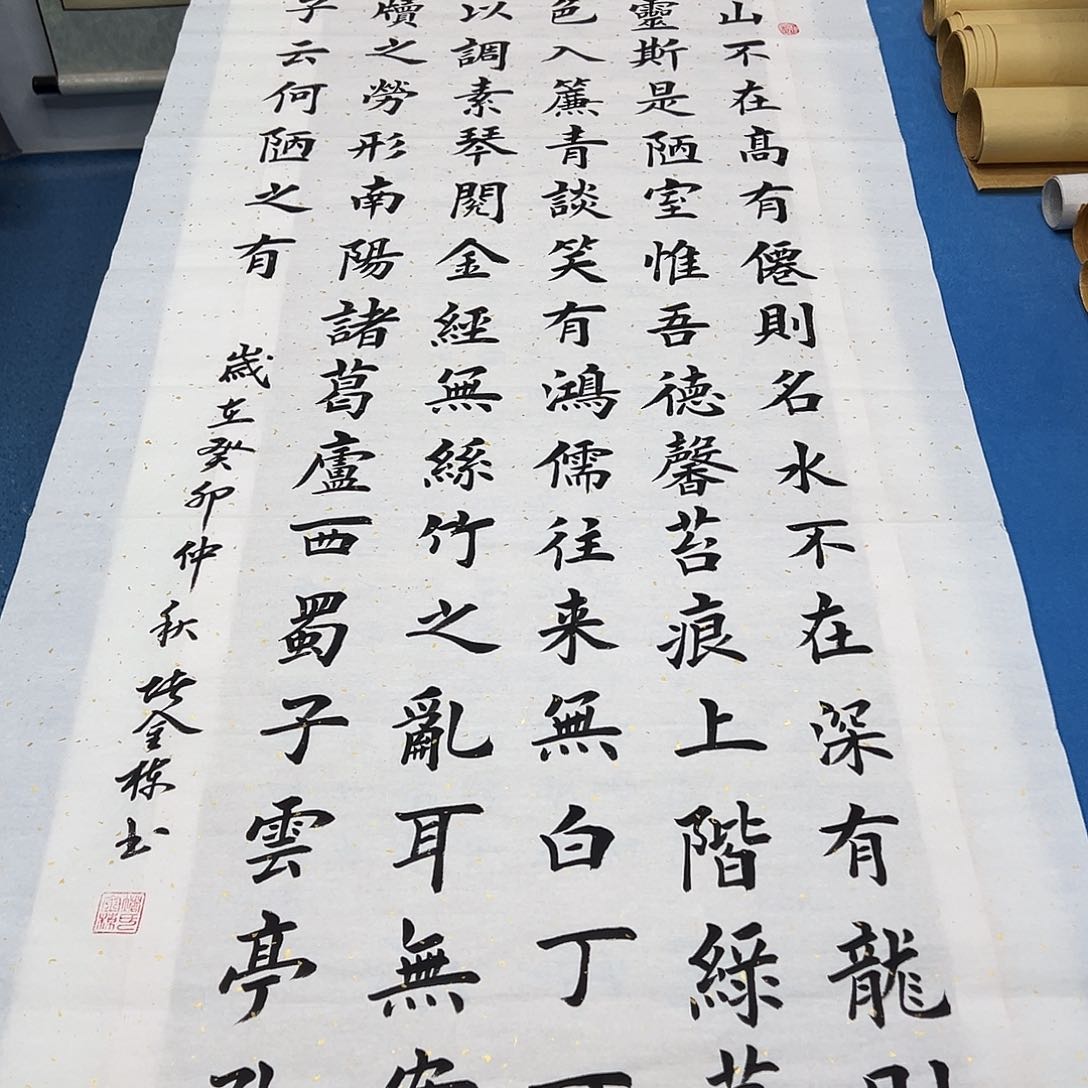 山不在高有僊則名水不在深有龍則
靈斯是陋室惟吾德馨苔痕上階綠草
色入簾青談笑有鴻儒往来無白丁
以調素琴閱金經無絲竹之亂耳無案
牘之勞形南陽諸葛廬西蜀子雲亭孔
子云何陋之有
歲在癸卯仲秋金棟书